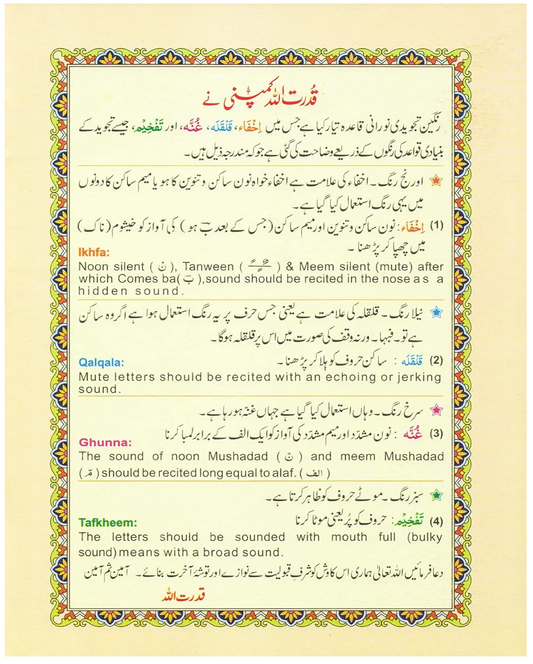 قدرت اللہ کمپنی نے
رنگین تجویدی نورانی قاعدہ تیار کیا ہے جس میں اِخْفَاء، قَلْقَلَہ، غُنَّہ، اور تَفْخِیْم، جیسے تجوید کے
بنیادی قواعد کی رنگوں کے ذریعے وضاحت کی گئی ہے جو کہ مندرجہ ذیل ہیں۔
اورنج رنگ۔ اخفاء کی علامت ہے اخفاء خواہ نون ساکن و تنوین کا ہو یا میم ساکن کا دونوں
میں یہی رنگ استعمال کیا گیا ہے۔
(1) اِخْفَاء: نون ساکن و تنوین اور میم ساکن (جس کے بعد بؔ ہو) کی آواز کو خیشوم (ناک)
میں چھپا کر پڑھنا۔
Ikhfa:
Noon silent ( نْ ), Tanween ( ـًـٍـٌ ) & Meem silent (mute) after
which Comes ba( بؔ ),sound should be recited in the nose as a
hidden sound.
نیلا رنگ۔ قلقلہ کی علامت ہے یعنی جس حرف پر یہ رنگ استعمال ہوا ہے اگر وہ ساکن
ہے تو۔ فبہا۔ ورنہ وقف کی صورت میں اس پر قلقلہ ہوگا۔
(2) قَلْقَلَہ : ساکن حروف کو ہلا کر پڑھنا۔
Qalqala:
Mute letters should be recited with an echoing or jerking
sound.
سرخ رنگ۔ وہاں استعمال کیا گیا ہے جہاں غنہ ہو رہا ہے۔
(3) غُنَّہ : نون مشدّد اور میم مشدّد کی آواز کو ایک الف کے برابر لمبا کرنا
Ghunna:
The sound of noon Mushadad ( نّ ) and meem Mushadad
( مّ ) should be recited long equal to alaf. ( الف )
سبز رنگ۔ موٹے حروف کو ظاہر کرتا ہے۔
(4) تَفْخِیْم: حروف کو پُر یعنی موٹا کرنا
Tafkheem:
The letters should be sounded with mouth full (bulky
sound) means with a broad sound.
دعا فرمائیں اللہ تعالیٰ ہماری اس کاوش کو شرفِ قبولیت سے نوازے اور توشۂ آخرت بنائے۔ آمین ثم آمین
قدرت اللہ